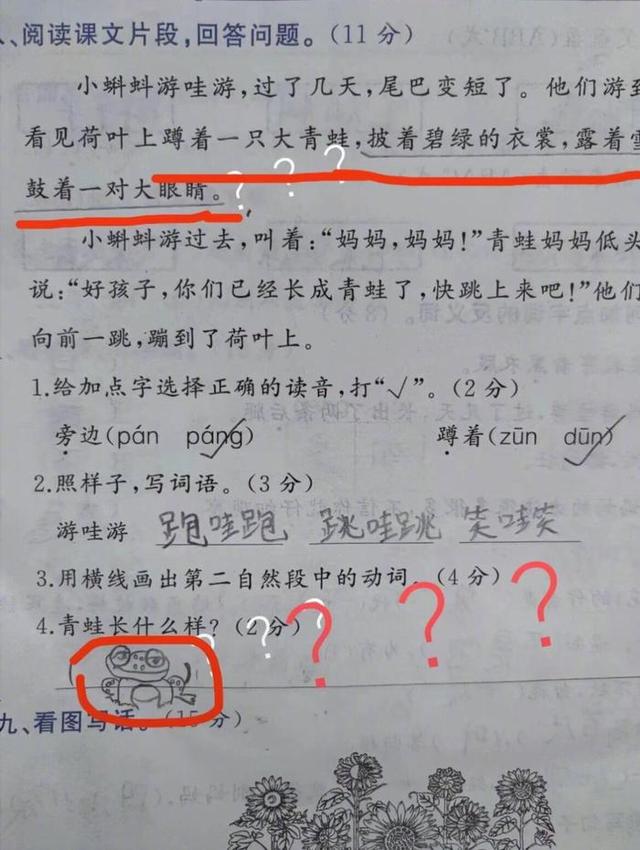 、阅读课文片段，回答问题。（11 分）
小蝌蚪游哇游，过了几天，尾巴变短了。他们游到
看见荷叶上蹲着一只大青蛙，披着碧绿的衣裳，露着雪
鼓着一对大眼睛。
? ? ?
小蝌蚪游过去，叫着：“妈妈，妈妈！”青蛙妈妈低头
说：“好孩子，你们已经长成青蛙了，快跳上来吧！”他们
向前一跳，蹦到了荷叶上。
1.给加点字选择正确的读音，打“√”。（2 分）
旁边（pán páng） 蹲着（zūn dūn）
2.照样子，写词语。（3 分）
游哇游 跑哇跑 跳哇跳 笑哇笑
3.用横线画出第二自然段中的动词。（4 分）
4.青蛙长什么样？（2 分）
? ? ? ? ?
九、看图写话。（15 分）